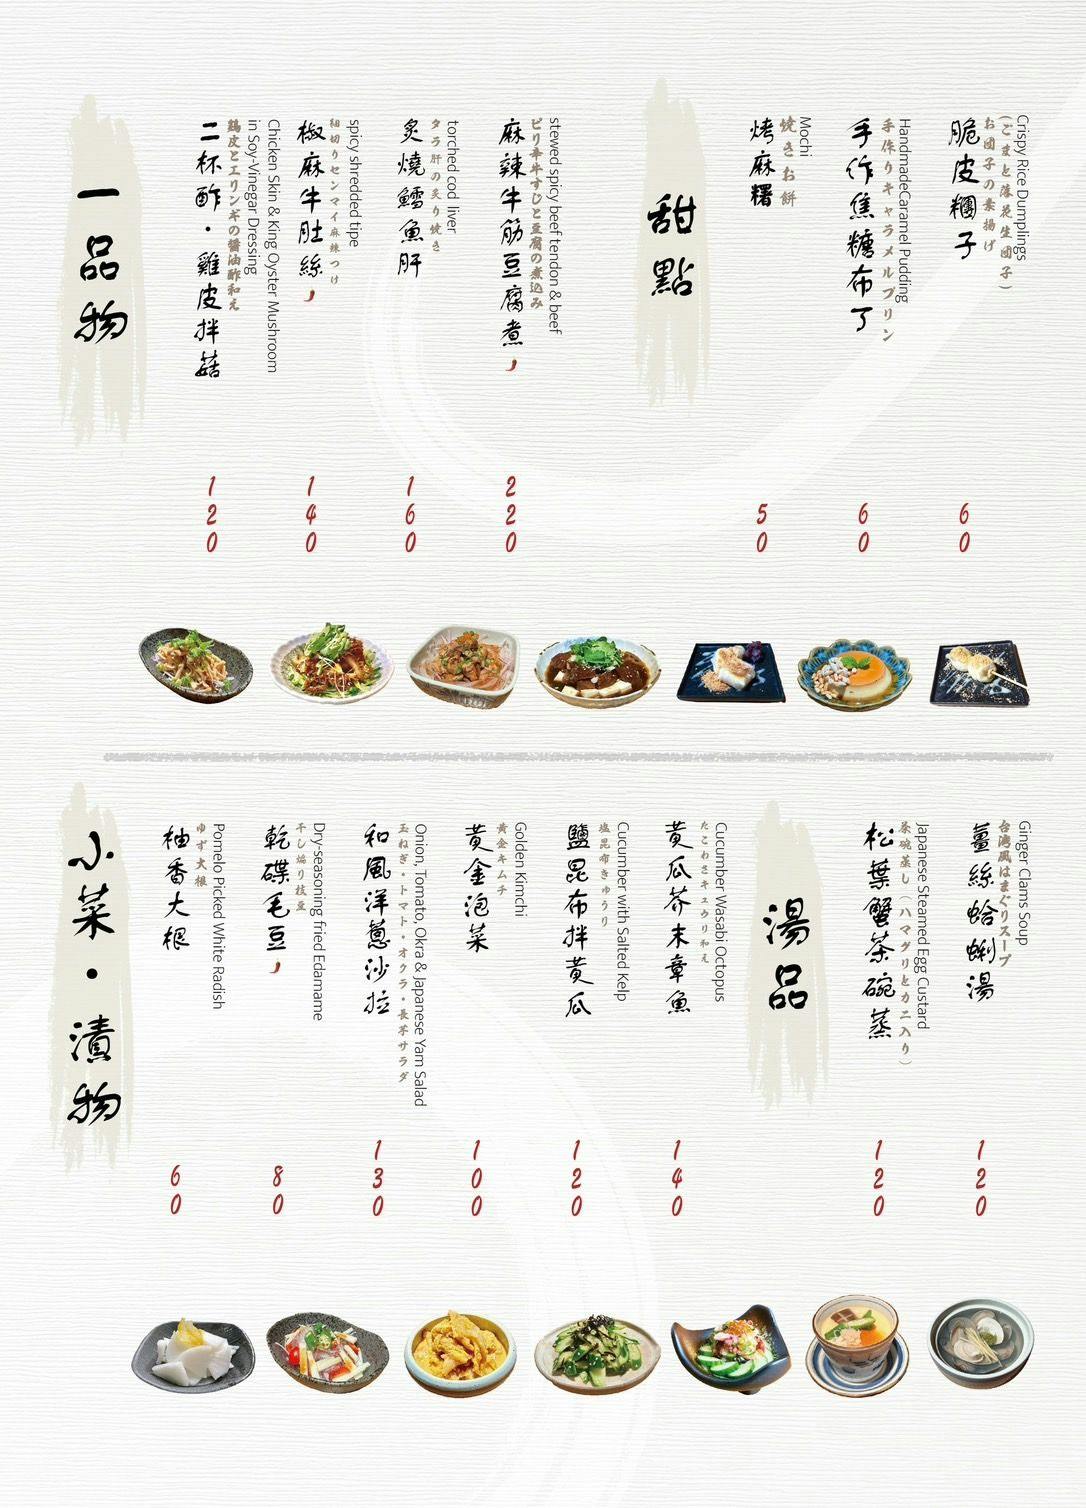 一品物
二杯酢・雞皮拌菇
鶏皮とエリンギの醤油酢和え
Chicken Skin & King Oyster Mushroom
in Soy-Vinegar Dressing
120
椒麻牛肚絲
細切りセンマイ麻辣つけ
spicy shredded tipe
140
炙燒鱈魚肝
タラ肝の炙り焼き
torched cod liver
160
麻辣牛筋豆腐煮
ピリ辛牛すじと豆腐の煮込み
stewed spicy beef tendon & beef
220
甜點
烤麻糬
焼きお餅
Mochi
50
手作焦糖布丁
手作りキャラメルプリン
HandmadeCaramel Pudding
60
脆皮糰子
お団子の素揚げ
(ごまと落花生団子)
Crispy Rice Dumplings
60
小菜・漬物
柚香大根
ゆず大根
Pomelo Picked White Radish
60
乾碟毛豆
干し煽り枝豆
Dry-seasoning fried Edamame
80
和風洋蔥沙拉
玉ねぎ・トマト・オクラ・長芋サラダ
Onion, Tomato, Okra & Japanese Yam Salad
130
黃金泡菜
黄金キムチ
Golden Kimchi
100
鹽昆布拌黃瓜
塩昆布きゅうり
Cucumber with Salted Kelp
120
黃瓜芥末章魚
たこわさキュウリ和え
Cucumber Wasabi Octopus
140
湯品
松葉蟹茶碗蒸
茶碗蒸し(ハマグリとカニ入り)
Japanese Steamed Egg Custard
120
薑絲蛤蜊湯
台湾風はまぐりスープ
Ginger Clams Soup
120